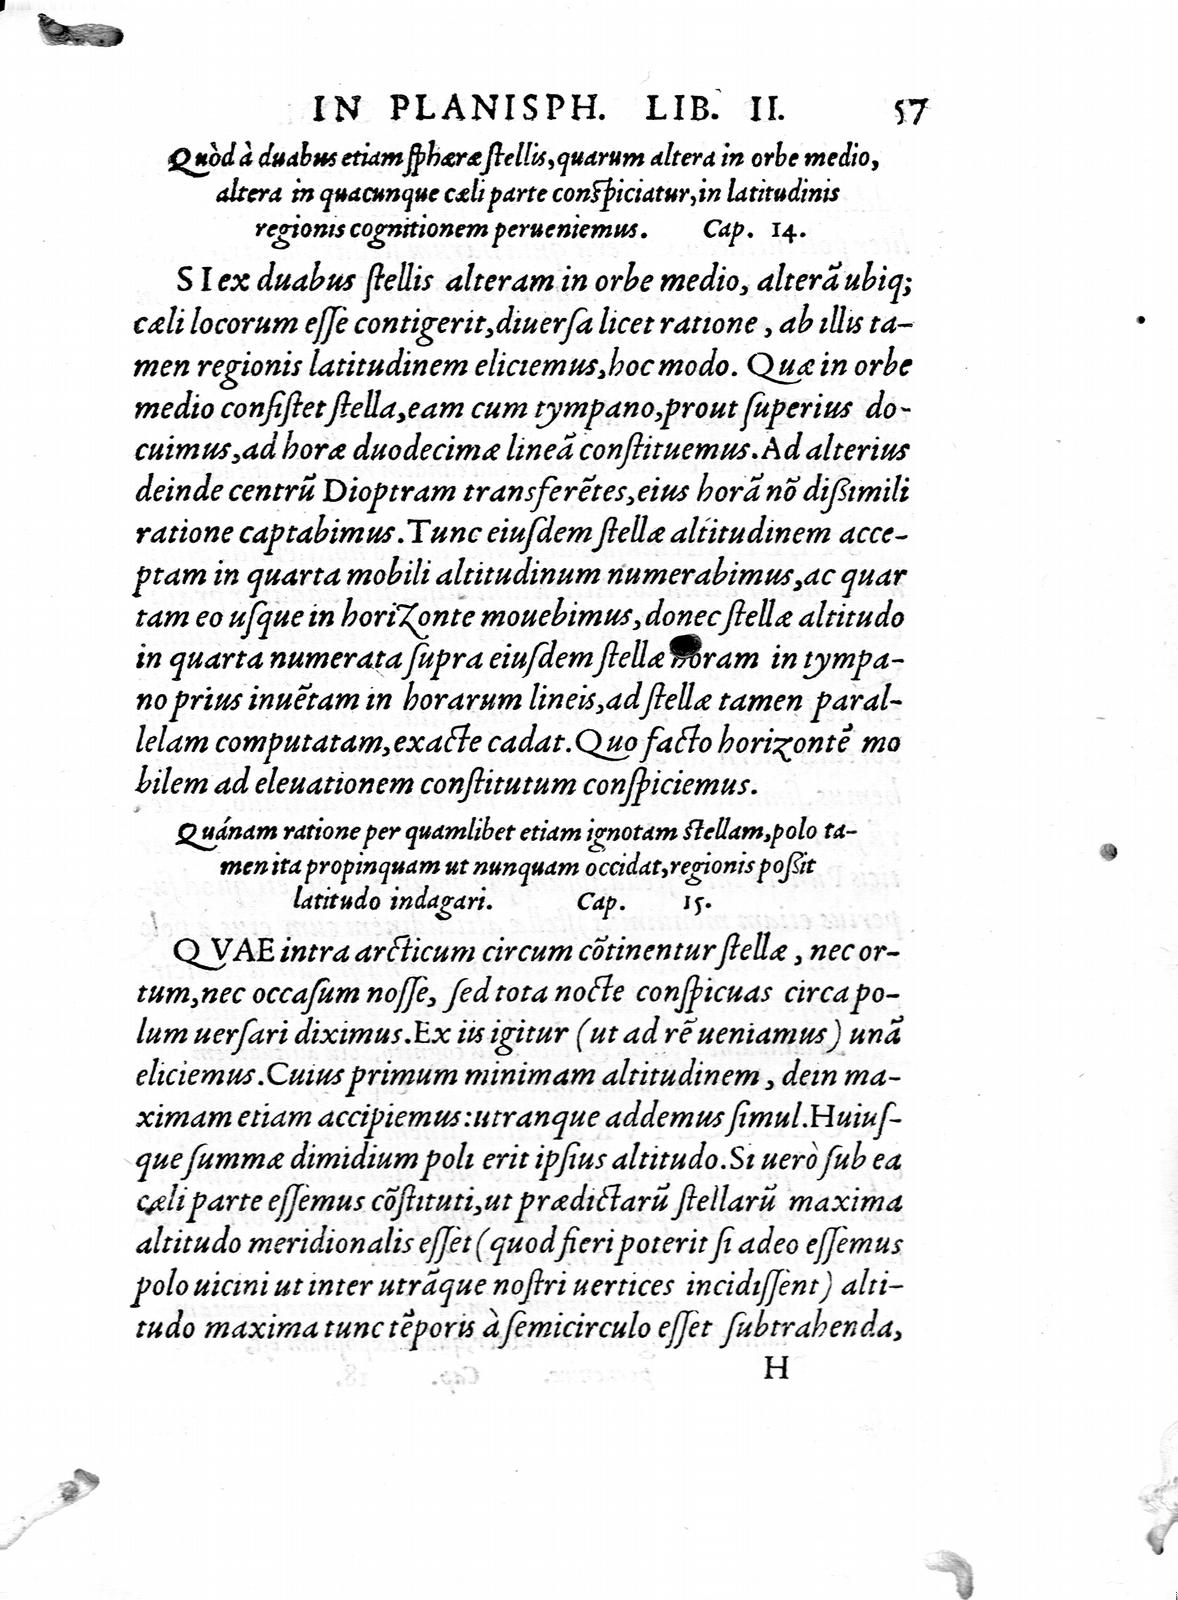 IN PLANISPH. LIB. II. 57
Quòd à duabus etiam sphæræ stellis, quarum altera in orbe medio,
altera in quacunque cæli parte conspiciatur, in latitudinis
regionis cognitionem perueniemus. Cap. 14.
SI ex duabus stellis alteram in orbe medio, alterã ubiq;
cæli locorum esse contigerit, diuersa licet ratione, ab illis ta-
men regionis latitudinem eliciemus, hoc modo. Quæ in orbe
medio consistet stella, eam cum tympano, prout superius do-
cuimus, ad horæ duodecimæ lineã constituemus. Ad alterius
deinde centrũ Dioptram transferẽtes, eius horã nõ dißimili
ratione captabimus. Tunc eiusdem stellæ altitudinem acce-
ptam in quarta mobili altitudinum numerabimus, ac quar
tam eo usque in horizonte mouebimus, donec stellæ altitudo
in quarta numerata supra eiusdem stellæ horam in tympa-
no prius inuẽtam in horarum lineis, ad stellæ tamen paral-
lelam computatam, exacte cadat. Quo facto horizontẽ mo
bilem ad eleuationem constitutum conspiciemus.
Quánam ratione per quamlibet etiam ignotam stellam, polo ta-
men ita propinquam ut nunquam occidat, regionis poßit
latitudo indagari. Cap. 15.
QVAE intra arcticum circum cõtinentur stellæ, nec or-
tum, nec occasum nosse, sed tota nocte conspicuas circa po-
lum uersari diximus. Ex iis igitur (ut ad rẽ ueniamus) unã
eliciemus. Cuius primum minimam altitudinem, dein ma-
ximam etiam accipiemus: utranque addemus simul. Huius-
que summæ dimidium poli erit ipsius altitudo. Si uerò sub ea
cæli parte essemus cõstituti, ut prædictarũ stellarũ maxima
altitudo meridionalis esset (quod fieri poterit si adeo essemus
polo uicini ut inter utrãque nostri uertices incidissent) alti-
tudo maxima tunc tẽporis à semicirculo esset subtrahenda,
H